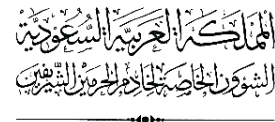 المملكة العربية السعودية
الشؤون الخاصة لخادم الحرمين الشريفين